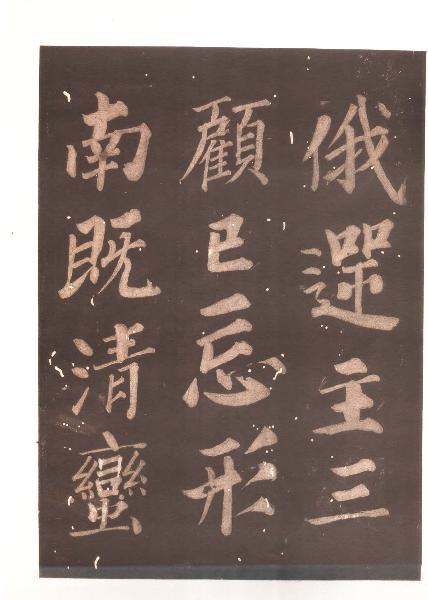 俄遻主三
顧已忘形
南既清蠻